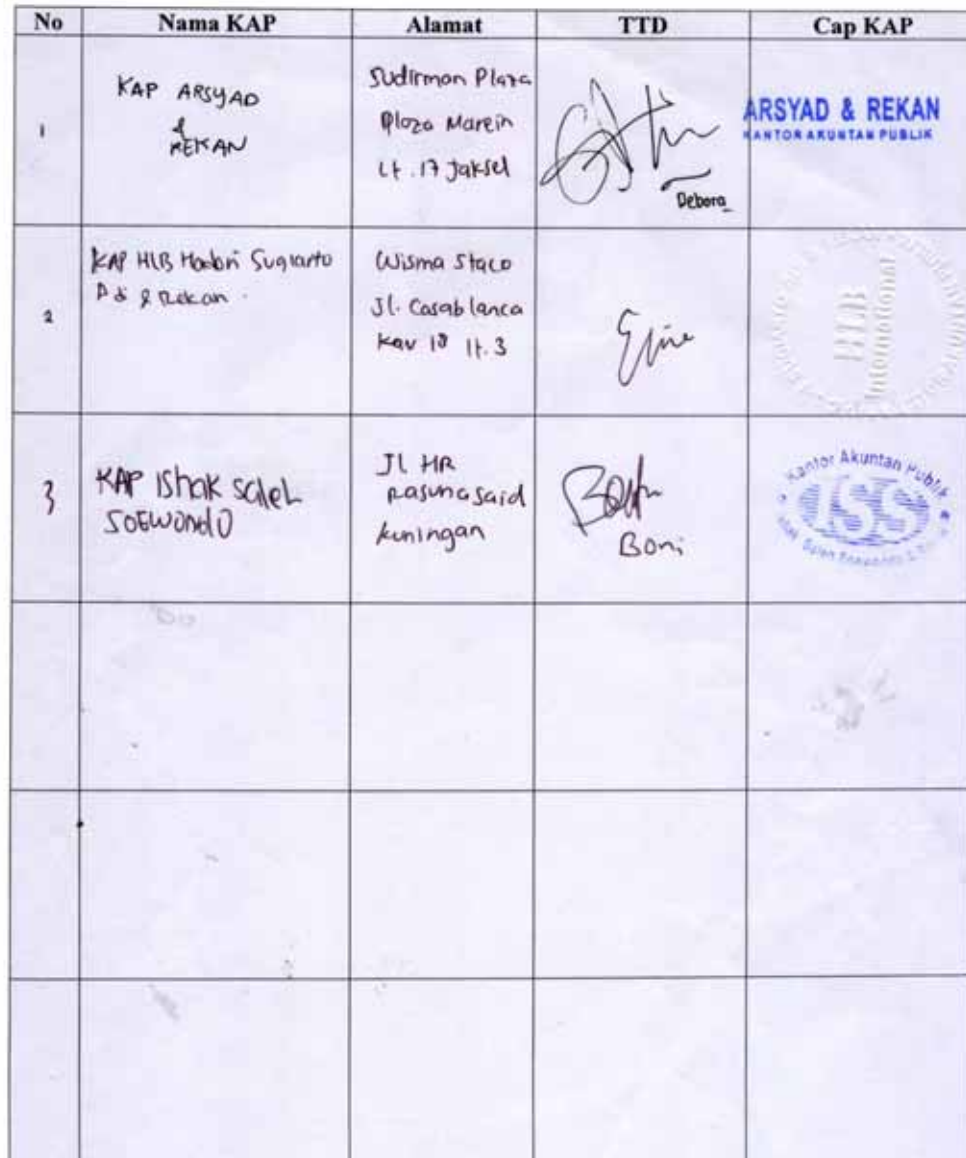 No Nama KAP Alamat TTD Cap KAP
1
KAP ARSYAD
&
REKAN
Sudirman Plaza
Plaza Marein
Lt. 17 Jaksel
Debora
ARSYAD & REKAN
KANTOR AKUNTAN PUBLIK
2
KAP HLB Hadori Sugiarto
& Rekan
Wisma Staco
Jl. Casablanca
Kav 18 lt. 3
HLB
International
3
KAP Ishak Saleh
SOEWONDO
JL HR
Rasuna Said
Kuningan
Boni
Kantor Akuntan Publik
ISS